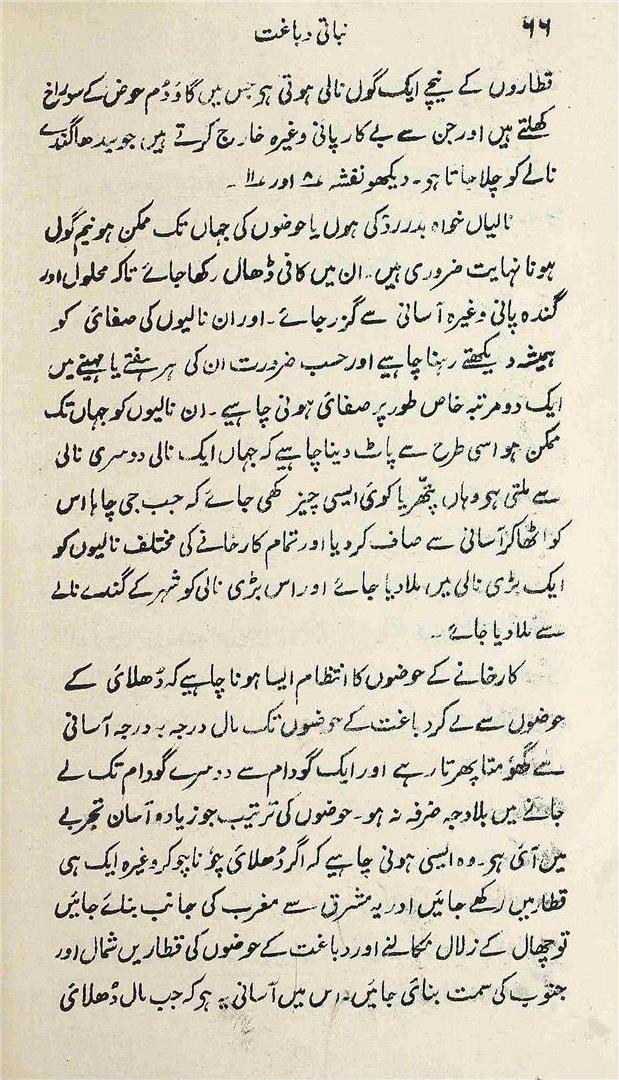 ۶۶
نباتی دباغت
قطاروں کے نیچے ایک گول نالی ہوتی ہو جس میں گاؤ دُم حوض کے سوراخ
کھلتے ہیں اور جن سے بے کار پانی وغیرہ خارج کرتے ہیں جو سیدھا گندے
نالے کو چلا جاتا ہو۔ دیکھو نقشہ ۸ اور ۱۱ ۔
نالیاں خواہ بدررو کی ہوں یا حوضوں کی جہاں تک ممکن ہو نیم گول
ہونا نہایت ضروری ہیں۔ ان میں کافی ڈھال رکھا جائے تاکہ محلول اور
گندہ پانی وغیرہ آسانی سے گزر جائے۔ اور ان نالیوں کی صفائی کو
ہمیشہ دیکھتے رہنا چاہیے اور حسب ضرورت ان کی ہر ہفتے یا مہینے میں
ایک دو مرتبہ خاص طور پر صفائی ہونی چاہیے۔ ان نالیوں کو جہاں تک
ممکن ہو اسی طرح سے پاٹ دینا چاہیے کہ جہاں ایک نالی دوسری نالی
سے ملتی ہو وہاں پتھّر یا کوئی ایسی چیز رکھی جائے کہ جب جی چاہا اس
کو اٹھا کر آسانی سے صاف کر دیا اور تمام کارخانے کی مختلف نالیوں کو
ایک بڑی نالی میں ملا دیا جائے اور اس بڑی نالی کو شہر کے گندے نالے
سے ملا دیا جائے ۔
کارخانے کے حوضوں کا انتظام ایسا ہونا چاہیے کہ دُھلائی کے
حوضوں سے لے کر دباغت کے حوضوں تک مال درجہ بہ درجہ آسانی
سے گھومتا پھرتا رہے اور ایک گودام سے دوسرے گودام تک لے
جانے میں بلاوجہ صرفہ نہ ہو۔ حوضوں کی ترتیب جو زیادہ آسان تجربے
میں آئی ہو۔ وہ ایسی ہونی چاہیے کہ اگر دُھلائی چؤنا چوکر وغیرہ ایک ہی
قطار میں رکھے جائیں اور یہ مشرق سے مغرب کی جانب بنائے جائیں
تو چھال کے زلال نکالنے اور دباغت کے حوضوں کی قطاریں شمال اور
جنوب کی سمت بنائی جائیں۔ اس میں آسانی یہ ہو کہ جب مال دُھلائی